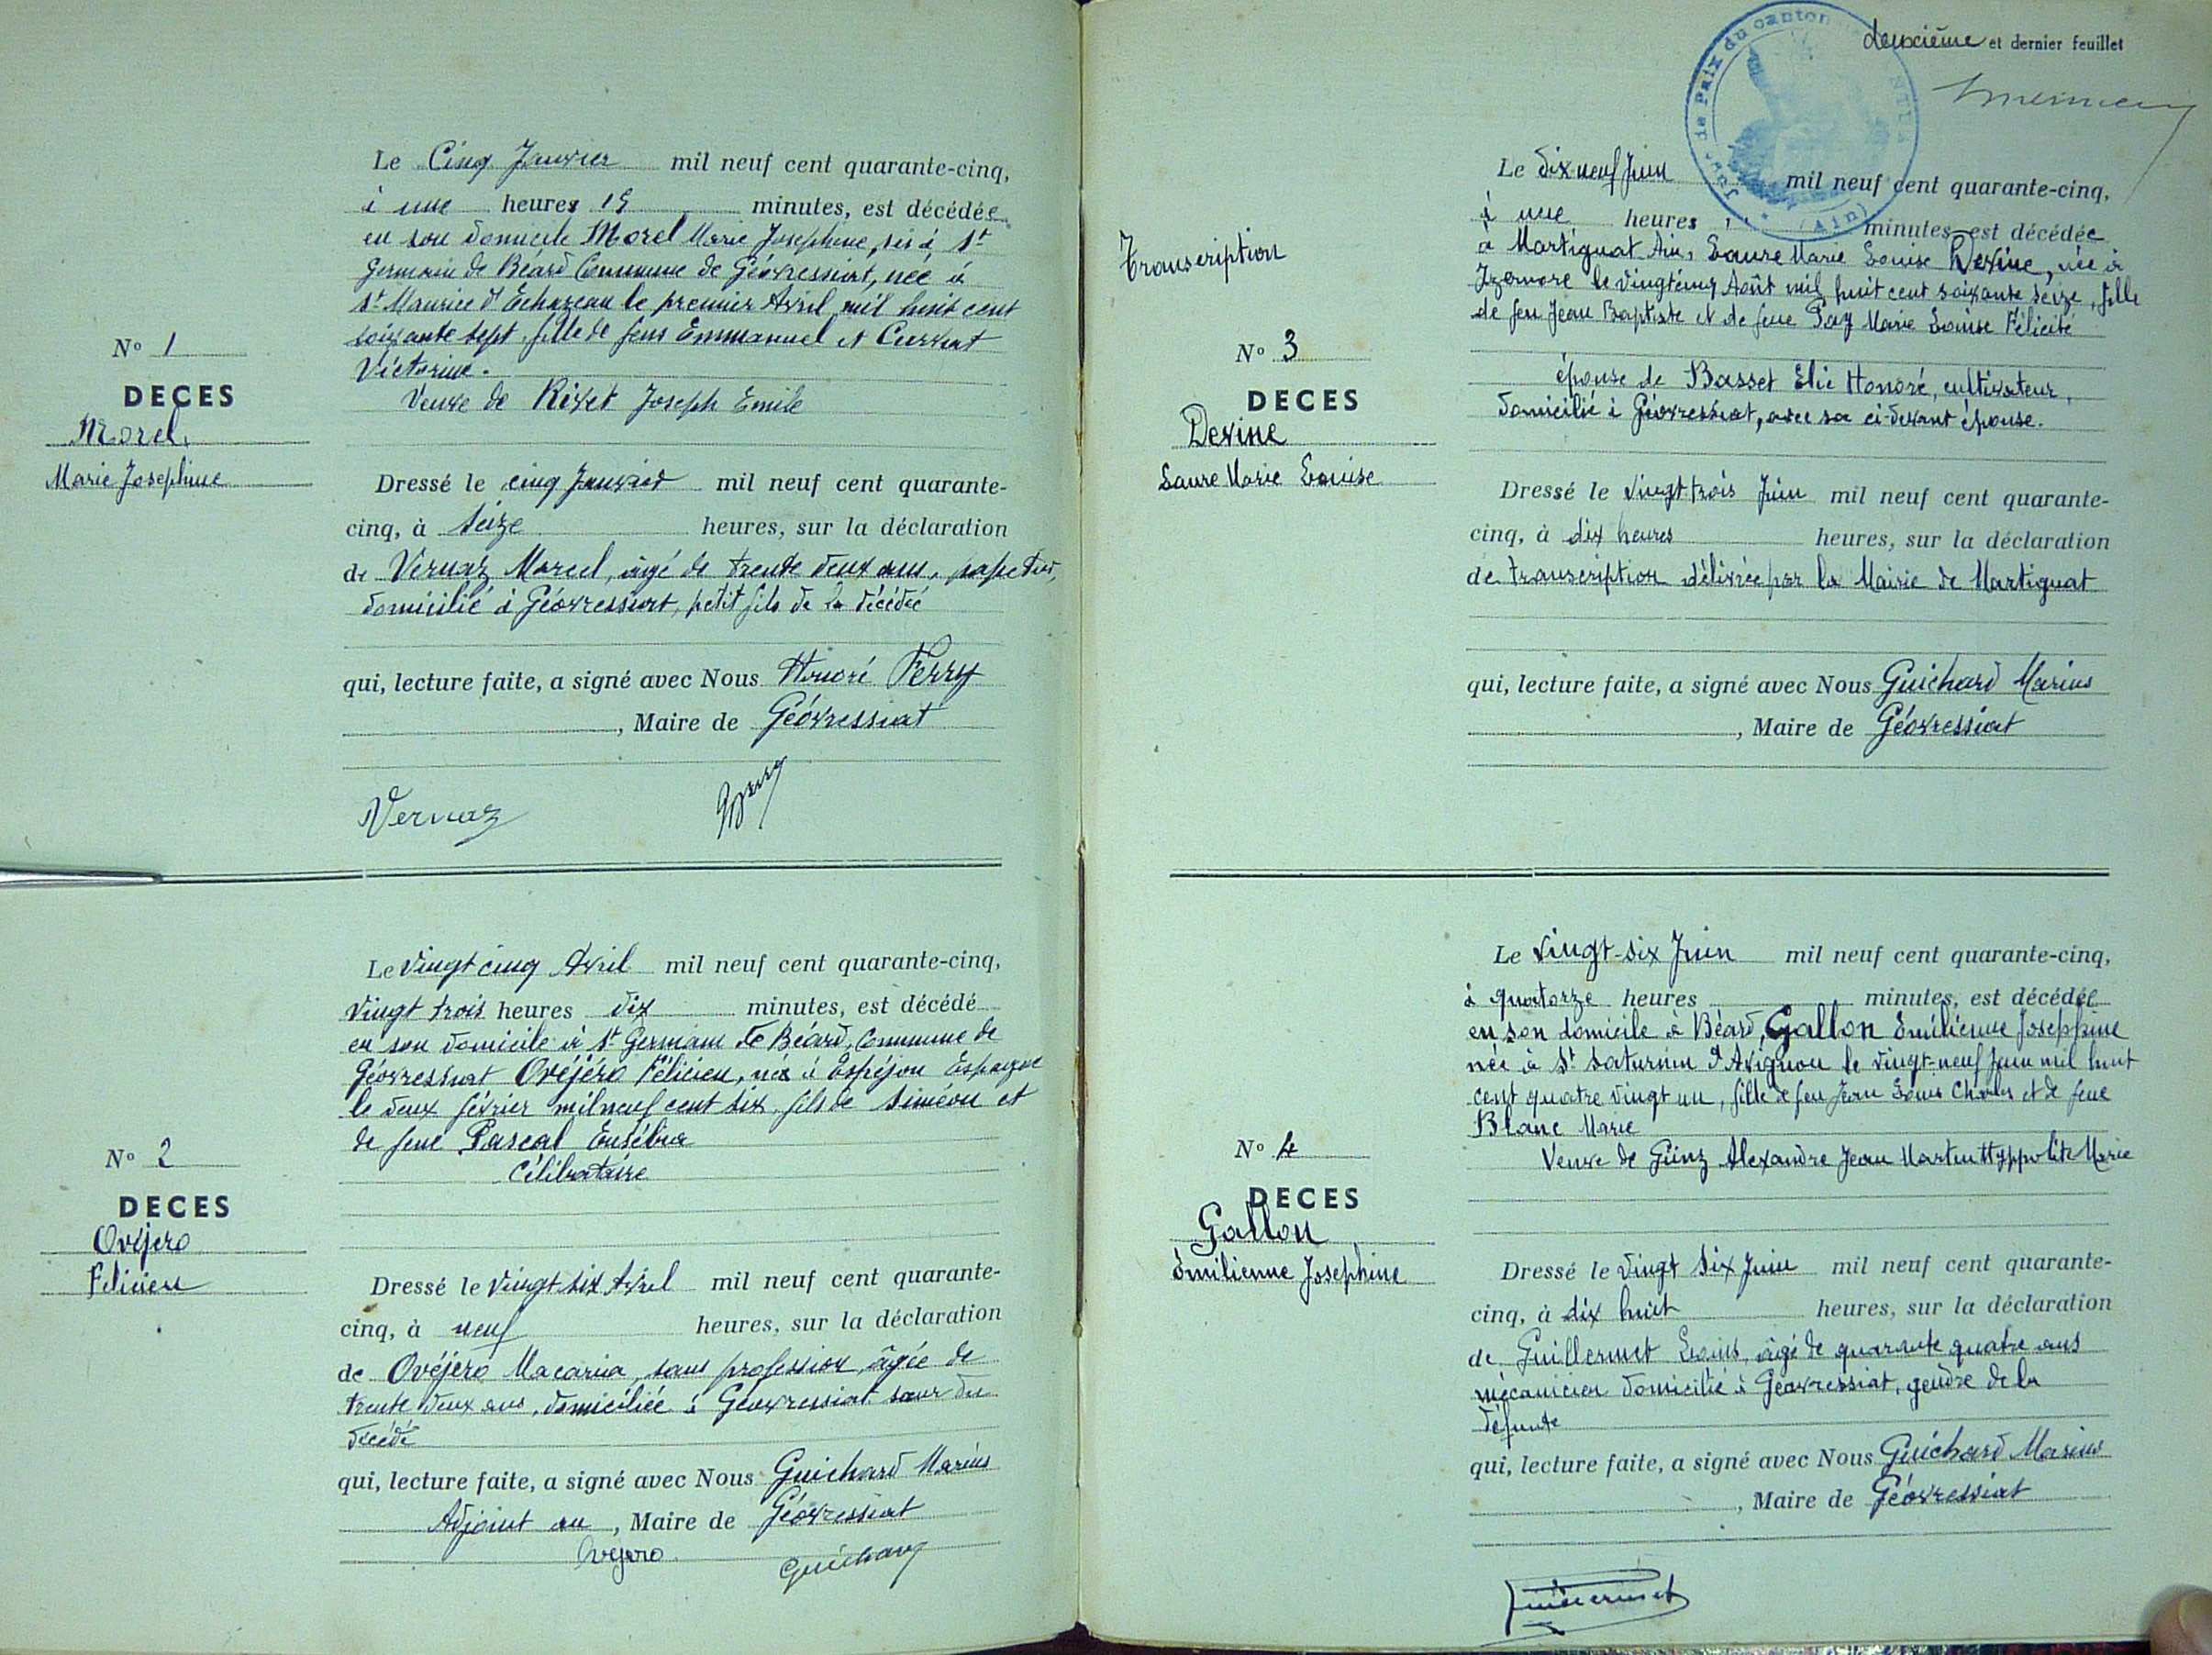 Le Cinq Janvier mil neuf cent quarante-cinq,
à une heures 15 minutes, est décédée
en son domicile Morel Marie Josephine, sis à St
Germain de Béard Commune de Géovressiat, née à
St Maurice d'Echazeau le premier Avril mil huit cent
soixante sept, fille de feus Emmanuel et Curvat
Victorine.
Veuve de Rivet Joseph Emile
No 1
DECES
Morel
Marie Josephine
Dressé le cinq Janvier mil neuf cent quarante-
cinq, à seize heures, sur la déclaration
de Vernaz Marcel, âgé de trente deux ans,
domicilié à Géovressiat, petit fils de la décédée
qui, lecture faite, a signé avec Nous Honoré Ferry
, Maire de Géovressiat
Vernaz
Le vingt cinq Avril mil neuf cent quarante-cinq,
vingt trois heures dix minutes, est décédé
en son domicile à St Germain de Béard, Commune de
Géovressiat Ovéjéro Félicien, né à Espéjon Espagne
le deux février mil neuf cent six, fils de Siméon et
de feue Pascal Eusébia
Célibataire
No 2
DECES
Ovéjero
Félicien
Dressé le vingt six Avril mil neuf cent quarante-
cinq, à neuf heures, sur la déclaration
de Ovéjéro Macaria, sans profession, âgée de
trente deux ans, domiciliée à Géovressiat sœur du
décédé
qui, lecture faite, a signé avec Nous Guichard Marius
Adjoint au , Maire de Géovressiat
Ovejero Guichard
deuxième et dernier feuillet
Juge de Paix du canton
(Ain)
Transcription
Le dix neuf Juin mil neuf cent quarante-cinq,
à une heures minutes est décédée
à Martignat Ain, Laure Marie Louise Devine, née à
Izernore le vingt cinq Août mil huit cent soixante seize, fille
de feu Jean Baptiste et de feue Marie Louise Félicité
épouse de Basset Elie Honoré, cultivateur,
domicilié à Géovressiat, avec sa ci-devant épouse.
No 3
DECES
Devine
Laure Marie Louise
Dressé le vingt trois Juin mil neuf cent quarante-
cinq, à dix heures heures, sur la déclaration
de transcription délivrée par la Mairie de Martignat
qui, lecture faite, a signé avec Nous Guichard Marius
, Maire de Géovressiat
Le vingt-six Juin mil neuf cent quarante-cinq,
à quatorze heures minutes, est décédée
en son domicile à Béard, Gallon Emilienne Josephine
née à St Saturnin d'Avignon le vingt-neuf Juin mil huit
cent quatre vingt un, fille de feu Jean Louis Charles et de feue
Blanc Marie
Veuve de Alexandre Jean Martin Hyppolite Marie
No 4
DECES
Gallon
Emilienne Josephine
Dressé le vingt six Juin mil neuf cent quarante-
cinq, à dix huit heures, sur la déclaration
de Guillermet Louis, âgé de quarante quatre ans
mécanicien domicilié à Géovressiat, gendre de la
défunte
qui, lecture faite, a signé avec Nous Guichard Marius
, Maire de Géovressiat
Guillermet